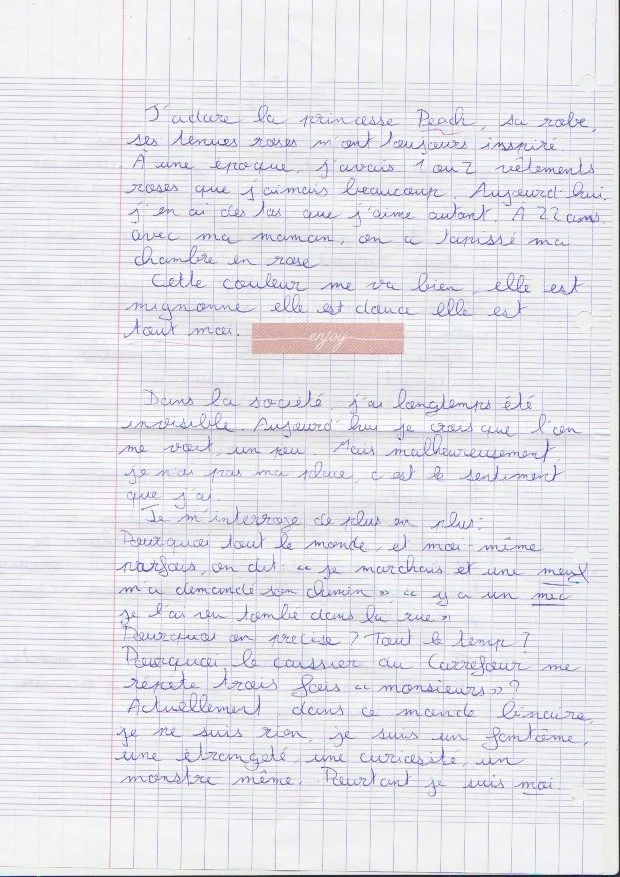 J'adore la princesse Peach, sa robe,
ses tenues roses m'ont toujours inspiré
À une époque, j'avais 1 ou 2 vêtements
roses que j'aimais beaucoup. Aujourd'hui,
j'en ai des tas que j'aime autant. A 22 ans,
avec ma maman, on a tapissé ma
chambre en rose
Cette couleur me va bien, elle est
mignonne elle est douce elle est
tout moi.
enjoy
Dans la société, j'ai longtemps été
invisible. Aujourd'hui je crois que l'on
me voit, un peu. Mais malheureusement,
je n'ai pas ma place, c'est le sentiment
que j'ai.
Je m'interroge de plus en plus:
Pourquoi tout le monde, et moi-même
parfois, on dit: « je marchais et une meuf
m'a demandé son chemin », « y a un mec
je l'ai vu tombé dans la rue »
Pourquoi on précise? Tout le temp?
Pourquoi, le caissier au Carrefour me
répète trois fois « monsieurs »?
Actuellement dans ce monde binaire,
je ne suis rien, je suis un fantôme,
une étrangeté, une curiosité, un
monstre même. Pourtant je suis moi.